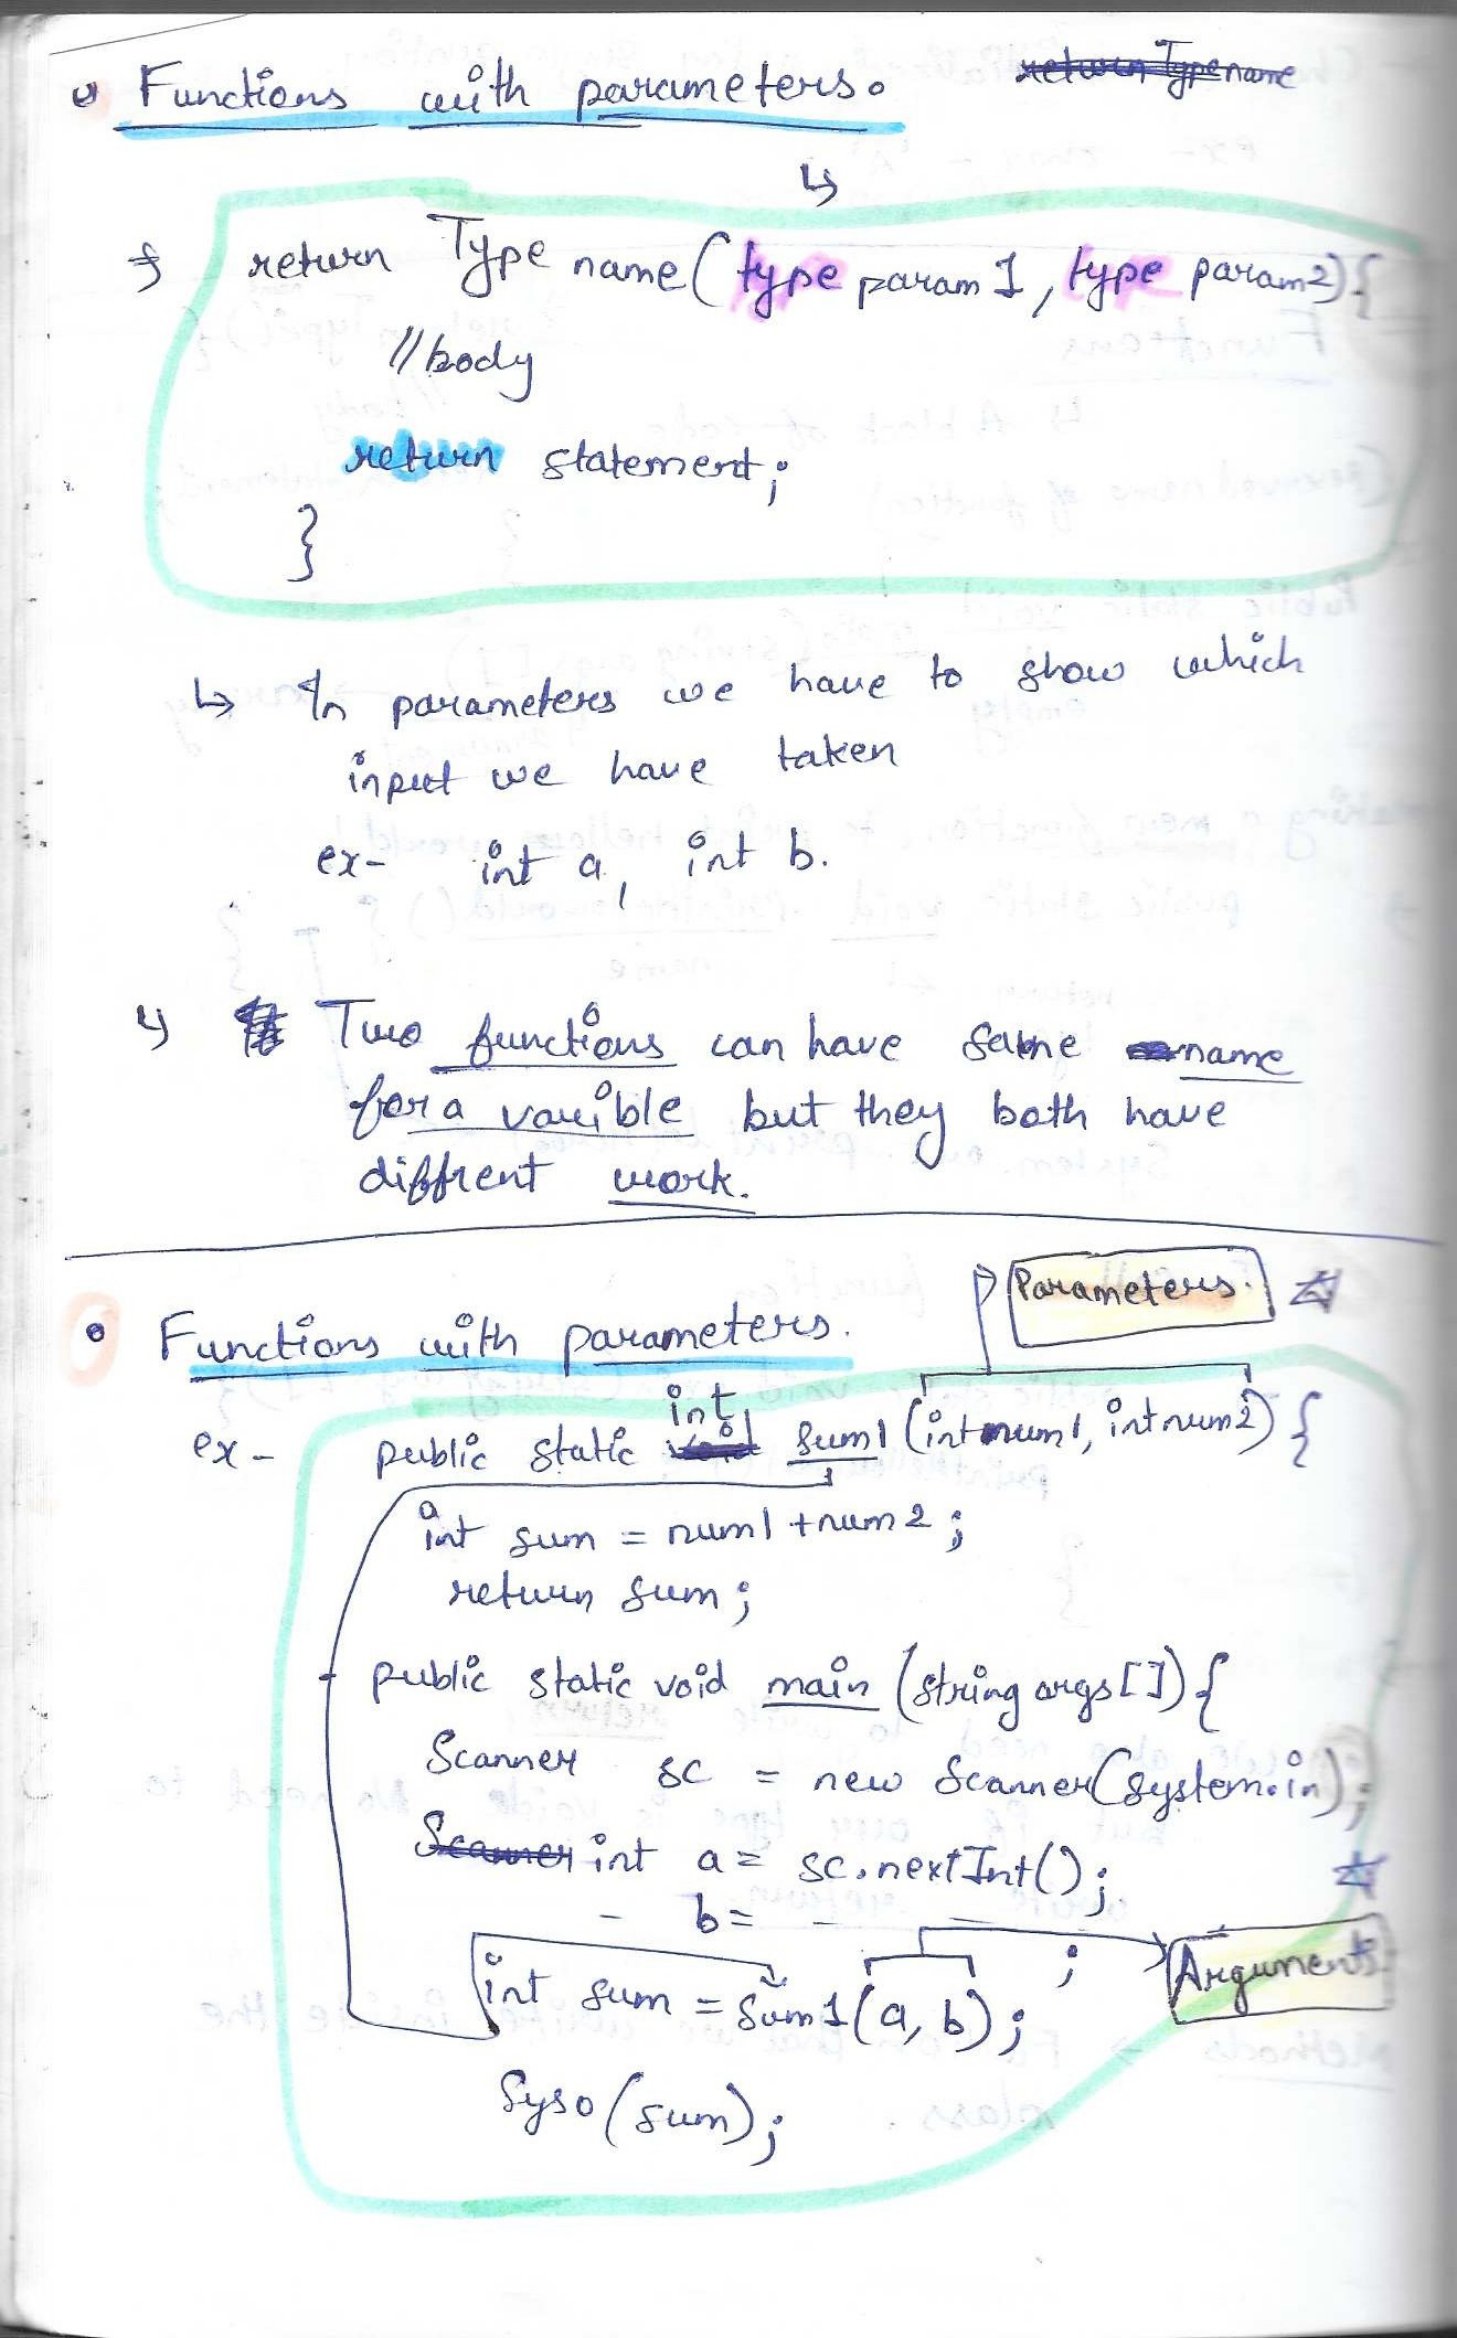 Functions with parameters.
return Type name
return Type name (type param 1, type param 2) {
//body
return statement;
}
In parameters we have to show which
input we have taken
ex- int a, int b.
Two functions can have same name
for a varible but they both have
diffrent work.
Parameters.
Functions with parameters.
int
ex- public static void sum1 (int num1, int num2) {
int sum = num1 + num2;
return sum;
public static void main (string args[]) {
Scanner sc = new Scanner(system.in);
Scanner int a = sc.nextInt();
- b = - - ;
Arguments
int sum = sum1(a, b);
Syso(sum);